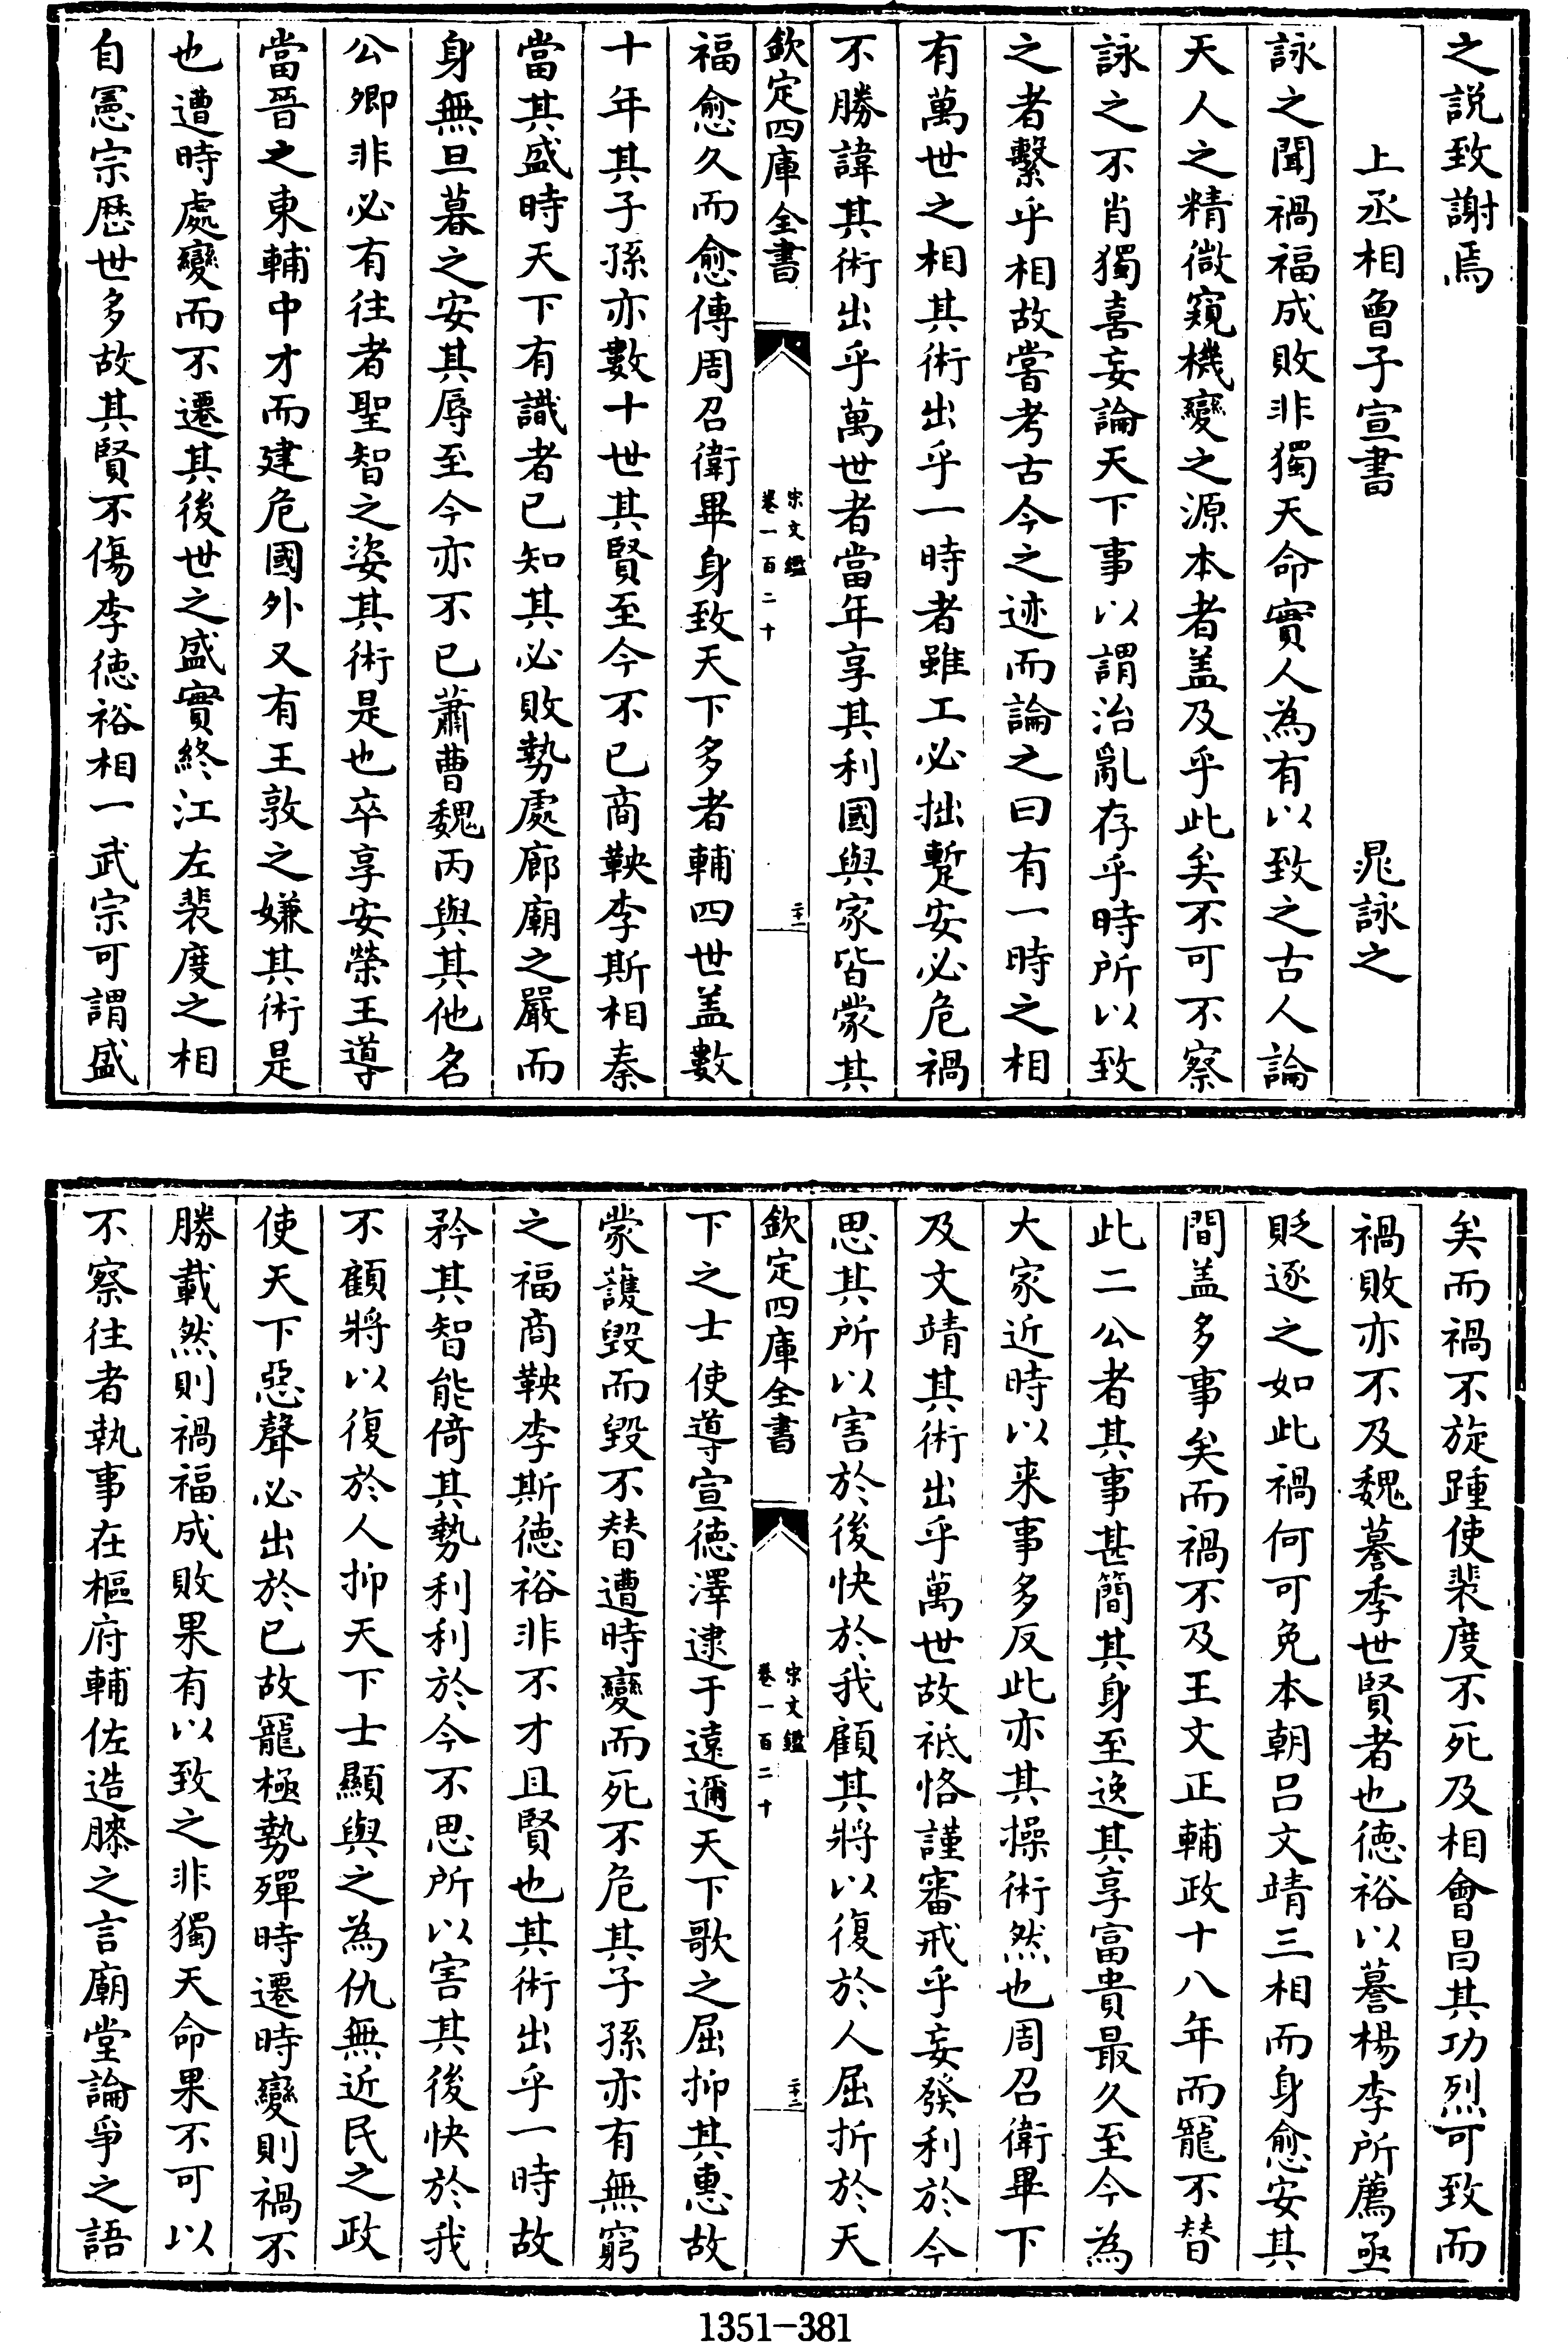 之説致謝焉
上丞相曾子宣書 晁詠之
詠之聞禍福成敗非獨天命實人為有以致之古人論
天人之精微窺機變之源本者盖及乎此矣不可不察
詠之不肖獨喜妄論天下事以謂治亂存乎時所以致
之者繫乎相故嘗考古今之迹而論之曰有一時之相
有萬世之相其術出乎一時者雖工必拙蹔安必危禍
不勝諱其術出乎萬世者當年享其利國與家皆蒙其
欽定四庫全書
宋文鑑
卷一百二十
二十一
福愈久而愈傳周召衛畢身致天下多者輔四世盖數
十年其子孫亦數十世其賢至今不已商鞅李斯相秦
當其盛時天下有識者已知其必敗勢處廊廟之嚴而
身無旦暮之安其辱至今亦不已蕭曹魏丙與其他名
公卿非必有往者聖智之姿其術是也卒享安榮王導
當晉之東輔中才而建危國外又有王敦之嫌其術是
也遭時處變而不遷其後世之盛實終江左裴度之相
自憲宗歴世多故其賢不傷李徳裕相一武宗可謂盛
矣而禍不旋踵使裴度不死及相會昌其功烈可致而
禍敗亦不及魏謩季世賢者也徳裕以謩楊李所薦亟
貶逐之如此禍何可免本朝吕文靖三相而身愈安其
間盖多事矣而禍不及王文正輔政十八年而寵不替
此二公者其事甚簡其身至逸其享富貴最久至今為
大家近時以来事多反此亦其操術然也周召衛畢下
及文靖其術出乎萬世故祗恪謹審戒乎妄發利於今
思其所以害於後快於我顧其將以復於人屈折於天
欽定四庫全書
宋文鑑
卷一百二十
二十二
下之士使導宣徳澤逮于遠邇天下歌之屈抑其惠故
蒙䕶毁而毁不替遭時變而死不危其子孫亦有無窮
之福商鞅李斯徳裕非不才且賢也其術出乎一時故
矜其智能倚其勢利利於今不思所以害其後快於我
不顧將以復於人抑天下士顯與之為仇無近民之政
使天下惡聲必出於已故寵極勢殫時遷時變則禍不
勝載然則禍福成敗果有以致之非獨天命果不可以
不察往者執事在樞府輔佐造膝之言廟堂論爭之語
1351-381